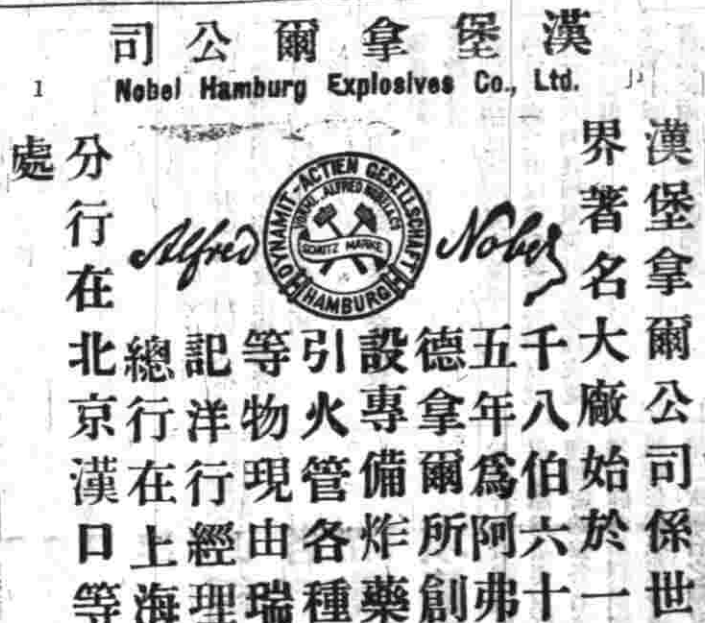 漢堡拿爾公司
Nobel Hamburg Explosives Co., Ltd.
1
Alfred Nobel
DYNAMIT-ACTIEN GESELLSCHAFT
VORMAL. ALFRED NOBEL & CO
SCHUTZ MARKE
HAMBURG
漢堡拿爾公司係世
界著名大廠始於一
千八伯六十
五年爲阿弗
德拿爾所創
設專備炸藥
引火管各種
等物現由瑞
記洋行經理
總行在上海
分行在北京漢口等
處